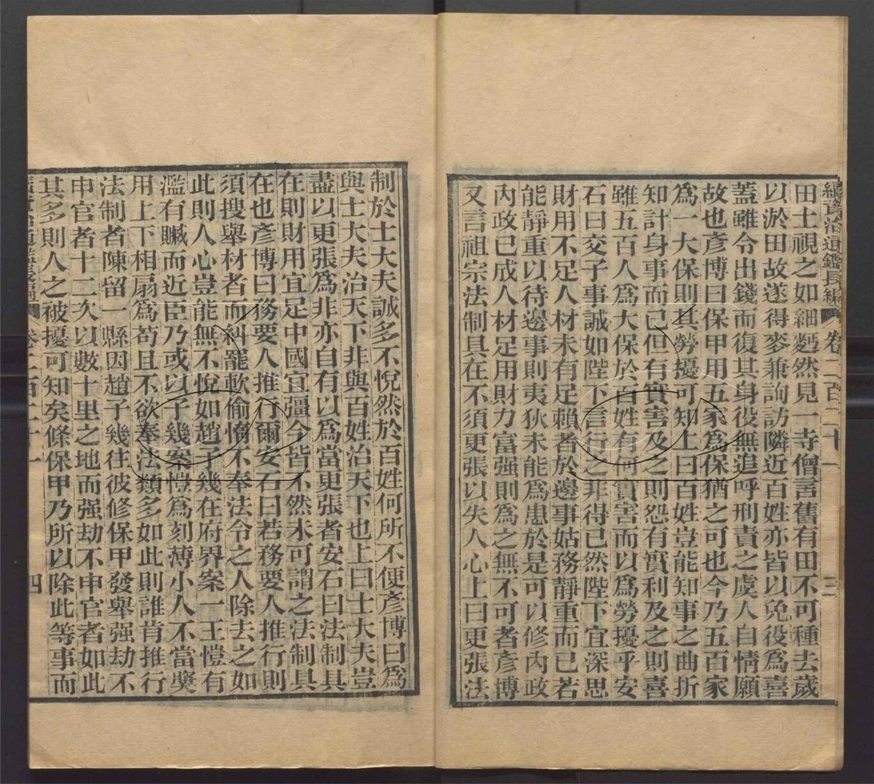 續資治通鑑長編 卷二百二十一 三
田土視之如細麪然見一寺僧言舊有田不可種去歲
以淤田故遂得麥兼詢訪隣近百姓亦皆以免役爲喜
蓋雖令出錢而復其身役無追呼刑責之虞人自情願
故也彥博曰保甲用五家爲保猶之可也今乃五百家
爲一大保則其勞擾可知上曰百姓豈能知事之曲折
知計身事而已但有實害及之則怨有實利及之則喜
雖五百人爲大保於百姓有何實害而以爲勞擾乎安
石曰交子事誠如陛下言行之非得已然陛下宜深思
財用不足人材未有足賴者於邊事姑務靜重而已若
能靜重以待邊事則夷狄未能爲患於是可以修內政
內政已成人材足用財力富强則爲之無不可者彥博
又言祖宗法制具在不須更張以失人心上曰更張法
制於士大夫誠多不悅然於百姓何所不便彥博曰爲
與士大夫治天下非與百姓治天下也上曰士大夫豈
盡以更張爲非亦自有以爲當更張者安石曰法制具
在則財用宜足中國宜彊今皆不然未可謂之法制具
在也彥博曰務要人推行爾安石曰若務要人推行則
須搜舉材者而糾罷軟偷惰不奉法令之人除去之如
此則人心豈能無不悅如趙子幾在府界案一王愷有
濫有贓而近臣乃或以子幾案愷爲刻薄小人不當奬
用上下相扇爲苟且不欲奉法類多如此則誰肯推行
法制者陳留一縣因趙子幾往彼修保甲發舉强劫不
申官者十二次以數十里之地而强劫不申官者如此
其多則人之被擾可知矣條保甲乃所以除此等事而
續資治通鑑長編 卷二百二十一 四